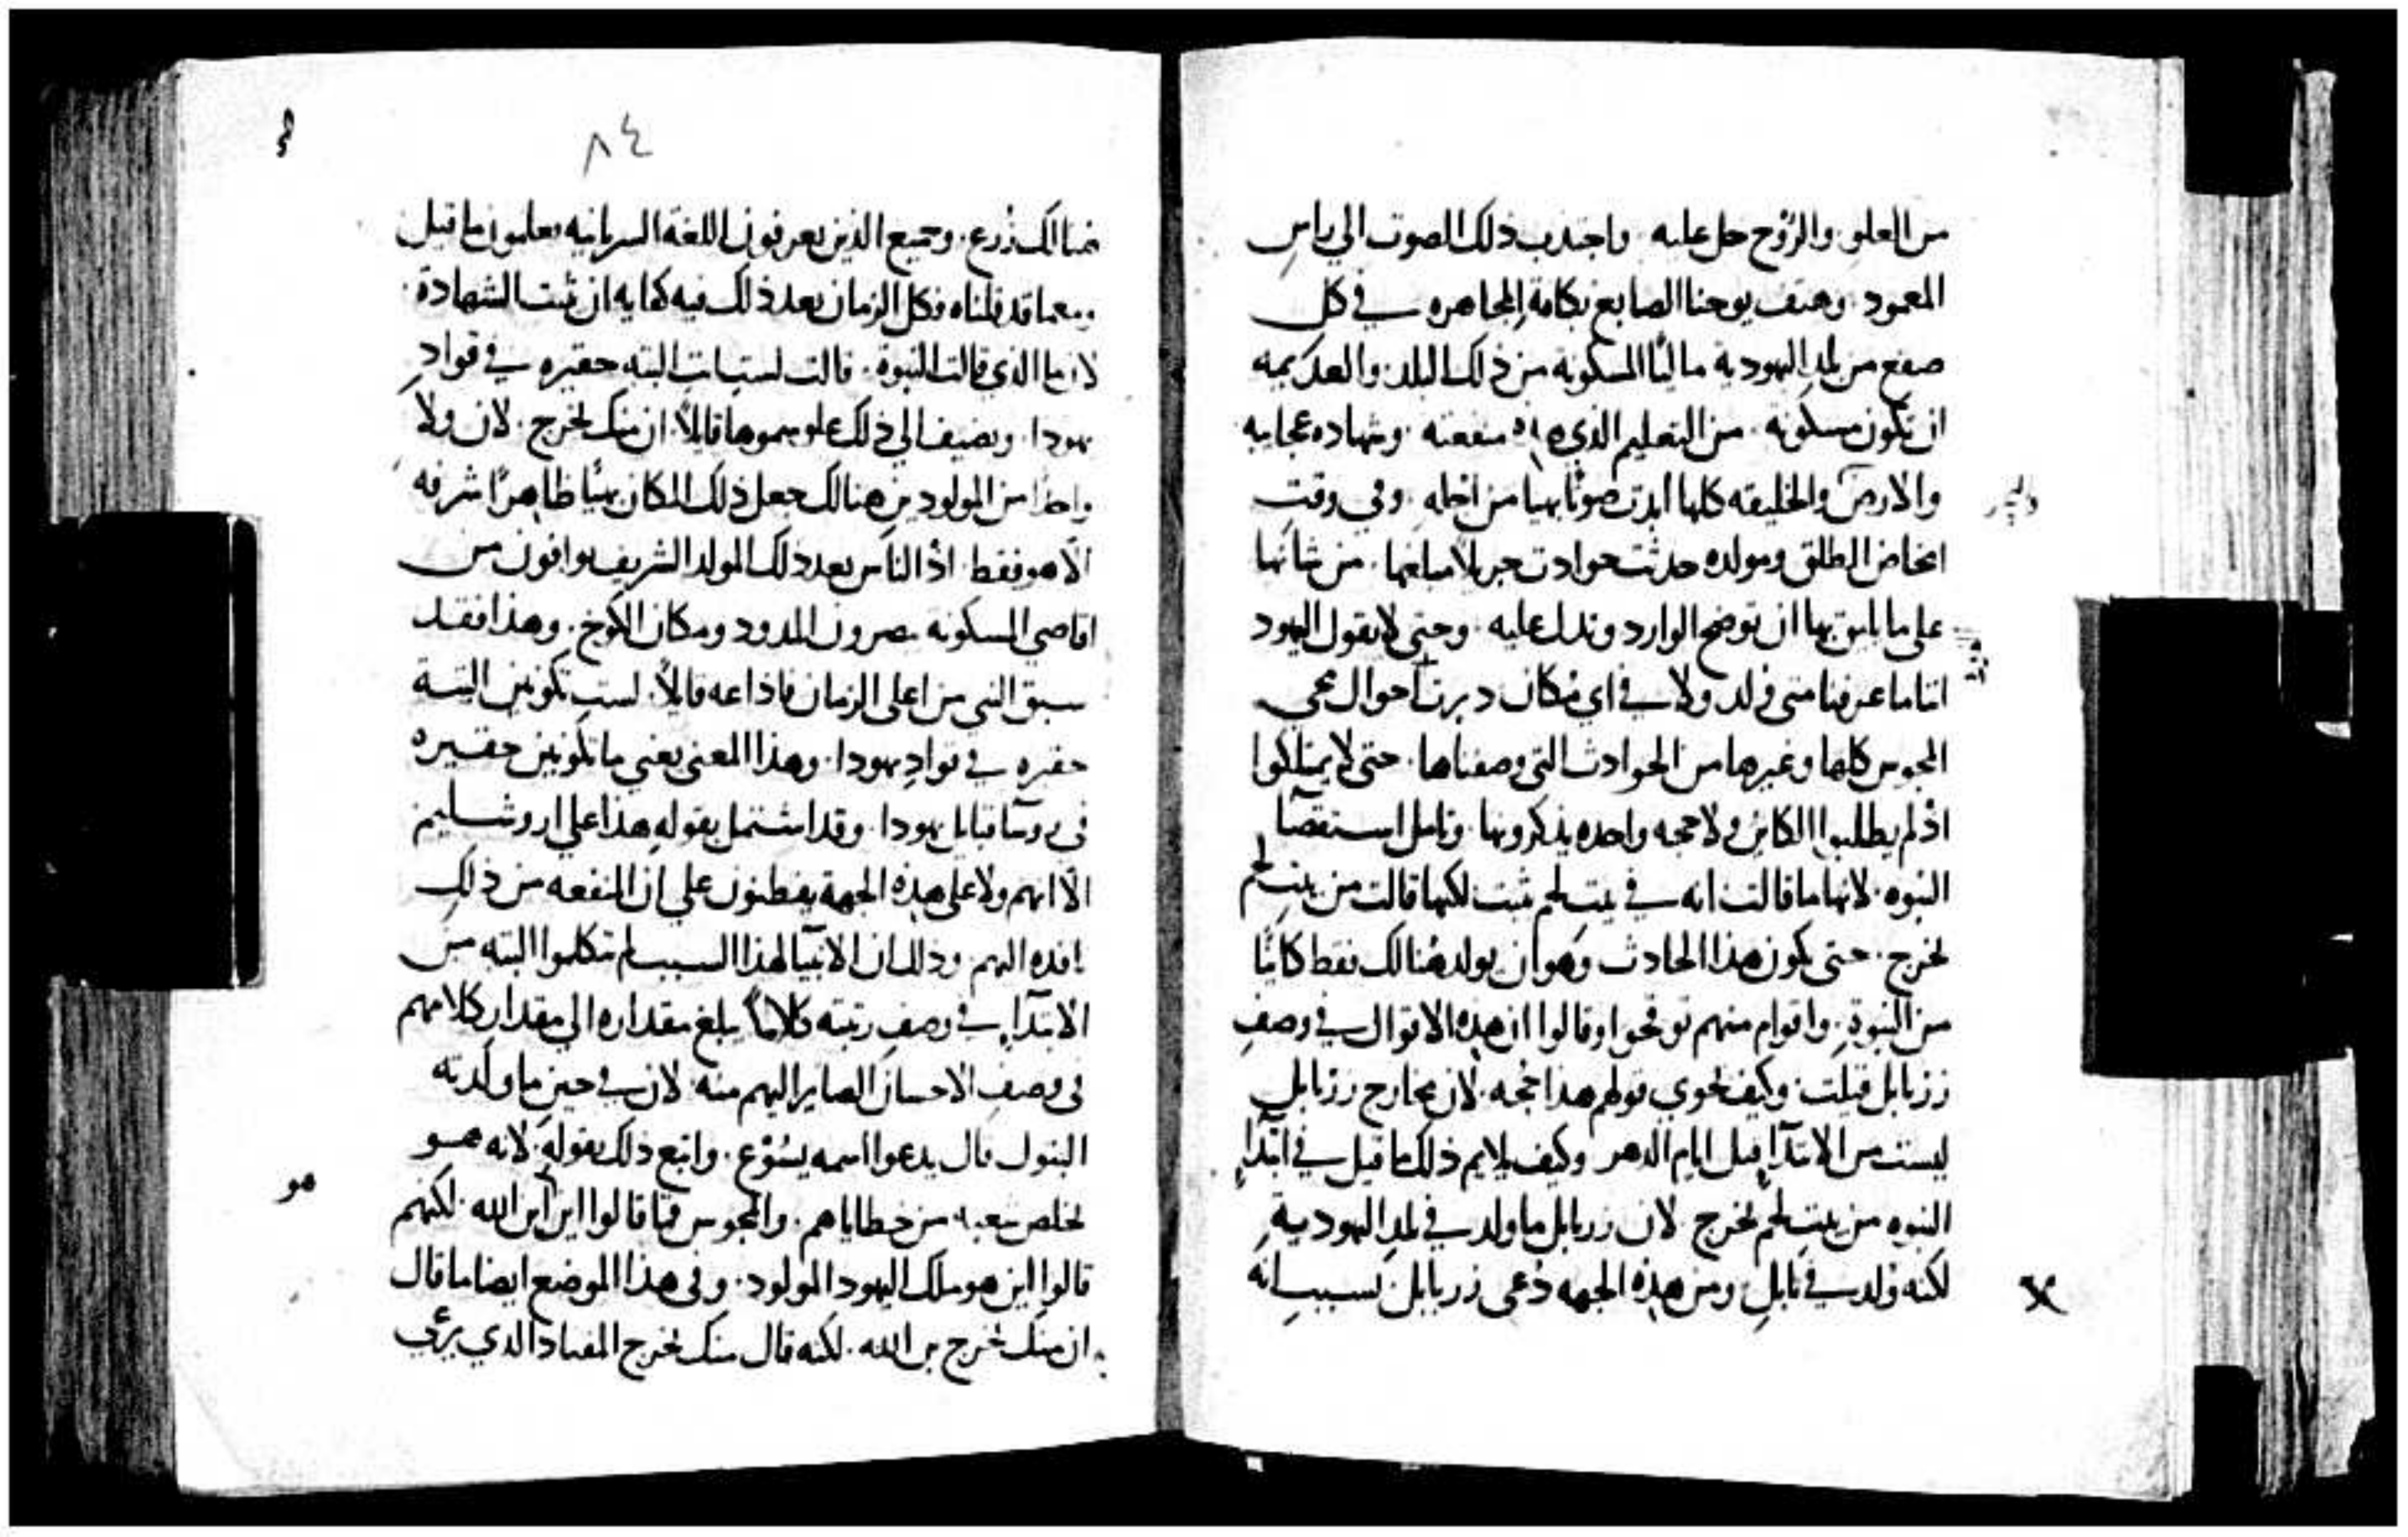 من العلو والرّوح حل عليه واجتذب ذلك الصوت الي راسِ
المعمود وهتف يوحنا الصابغ بكافةِ المجاهره في كل
صقع من بلدِ اليهودية ماليًا المسكونة من ذلك البلد والعديمه
ان تكون مسكونه من التعليم الذي منفعته وشهاده عجايبه
والارض والخليقه كلها ابدت صوتًا بهيا من اجله وفي وقت
امخاض الطلق ومولده حدثت حوادث جرى لامبلغها من شانها
على ما يليق بها ان توضح الوارد وتدل عليه وحتي لا يقول اليهود
اننا ما عرفنا متي وُلد ولا في اي مكان دبرت احوال مجي
المجوس كلها وغيرها من الحوادث التي وصفناها حتى لا يمتلكوا
اذ لم يطلبوا الكاين ولا حجه واحده يذكرونها وتامل استقصآ
النبوه لانها ما قالت انه في بيت لحم ثبت لكنها قالت من بيت لحم
يخرج حتى يكون هذا الحادث وهو ان يولد هُنالك فقط كاينًا
من النبوةِ واقوام منهم توقحوا وقالوا ان هذه الاقوال في وصفِ
زربابل قيلت وكيف يحوي قولهم هذا حجه لان مخارج زربابل
ليست من الابتدآءِ قبل ايام الدهر وكيف يلايم ذلك ما قيل في ابتدآءِ
النبوه من بيت لحم يخرج لان زربابل ما ولد في بلدِ اليهوديةِ
لكنه وُلد في بابلِ ومن هذه الجهه دُعي زربابل بسببِ انه
٨٤
هنالك زُرع وجميع الذين يعرفون اللغة السريانيه يعلمون ما قيل
ومعما قد قلناه فكل الزمان بعد ذلك فيه كفايه ان تثبت الشهادة
لان ما الذي قالت النبوة قالت لستِ البته حقيره في قوادِ
يهودا ويضيف الي ذلك علو سموها قايلاً ان منك يخرج لان ولا
واحدًا من المولودين هنالك جعل ذلك المكان بهيًا ظاهرًا شرفه
الّا هو فقط اذ الناس بعد ذلك المولد الشريف يوافون من
اقاصي المسكونه يبصرون المدود ومكان الكوخ وهذا فقد
سبق النبي من اعلى الزمان فاذاعه قايلاً لستِ تكونين البتة
حقيره في قوادِ يهودا وهذا المعنى يعني ما تكونين حقيره
في روسآ قبايل يهودا وقد اشتمل بقولهِ هذا على اروشليم
الّا انهم ولا على هذه الجهة يفطنون علي ان المنفعه من ذلك
نافده اليهم وذلك ان الانبيآ لهذا السبب لم يتكلموا البته من
الابتدآءِ في وصفِ رتبته كلامًا يبلغ مقداره الي مقدارِ كلامهم
في وصفِ الاحسان الصاير اليهم منه لان في حين ما ولدته
البتول قال يدعوا اسمه يسُوْع واتبع ذلك بقولهِ لانه هو
يخلص شعبه من خطاياهم والمجوس فما قالوا اين ابن الله لكنهم
قالوا اين هو ملك اليهود المولود وفي هذا الموضع ايضا ما قال
ان منك يخرج بن الله لكنه قال منك يخرج المقتاد الذي يرعي
هو